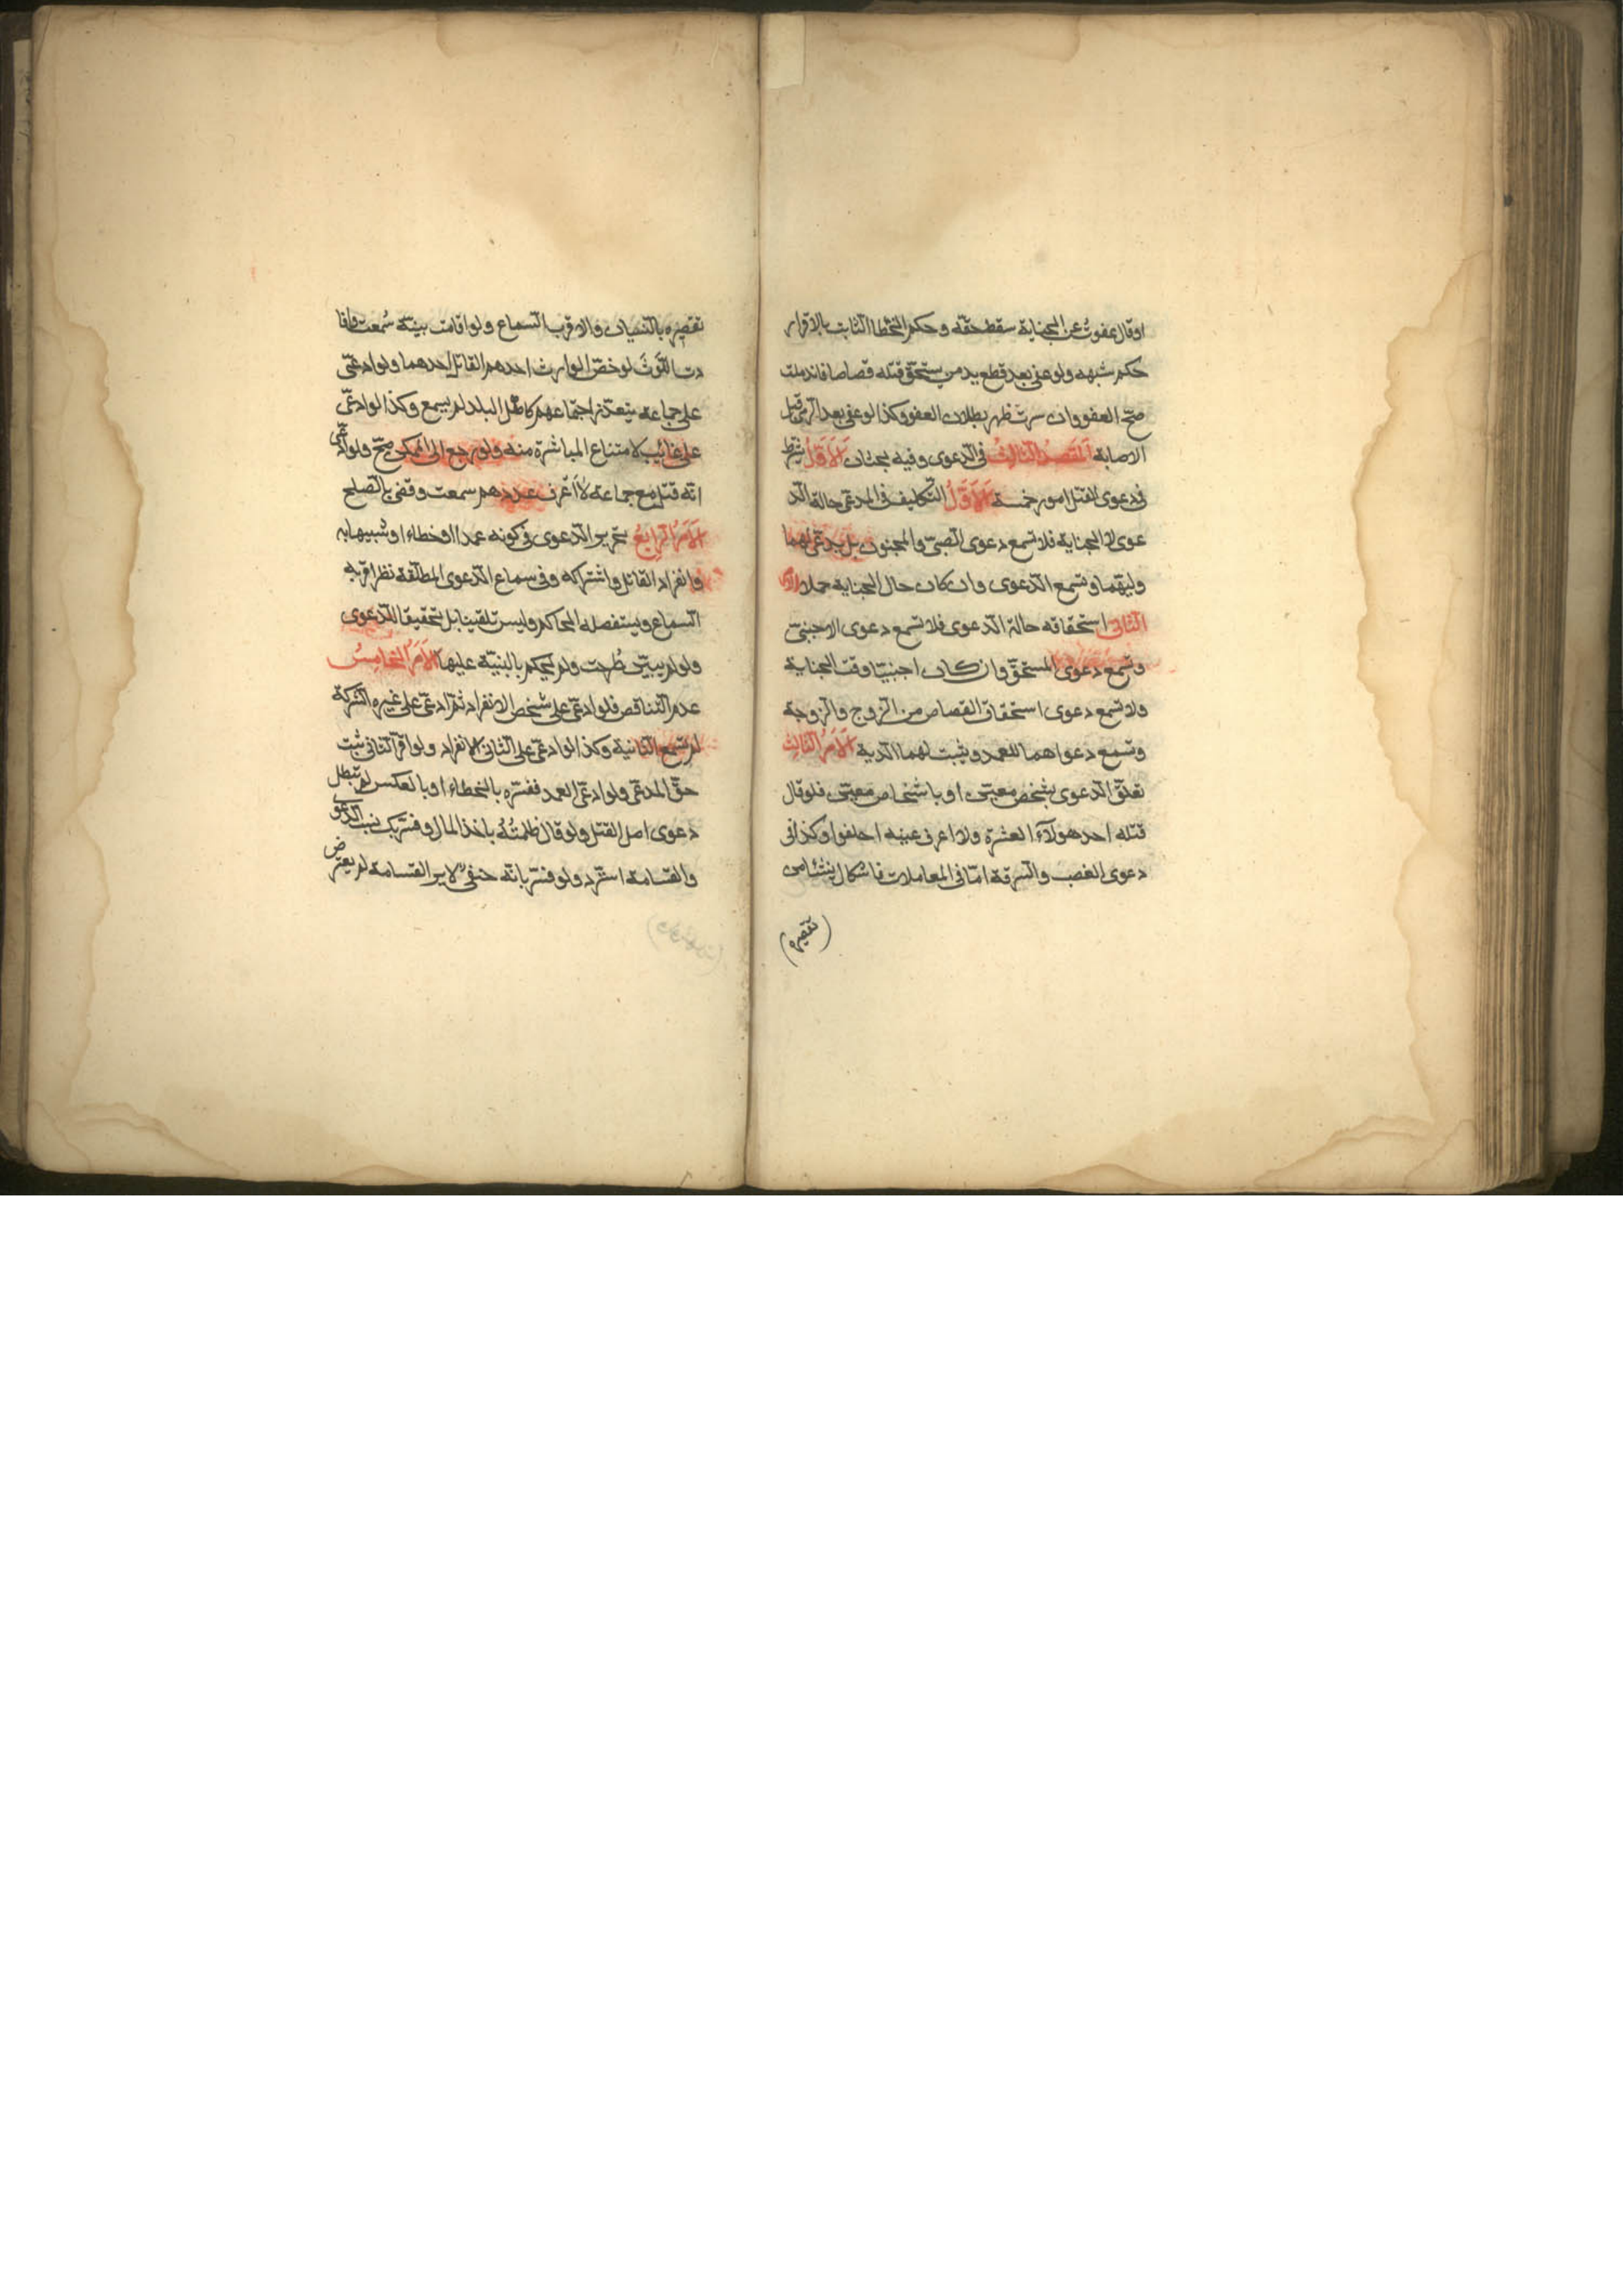 اوقال عفوتُ عن الجناية سقط حقّه وحكم الخطا الثابت بالاقرار
حكم شبهه ولو عفى بعد قطع يد من يستحق قتله قصاصا فاندملت
صحّ العفو وان سرت ظهر بطلان العفو وكذا لو عفى بعد الرمى قبل
الاصابة المقصد الثالث فى الدّعوى وفيه بحثان الاَوّلُ يشترط
فى دعوى القتل امور خمسة الاَوّلُ التّكليف فى المدعى حالة الد
عوى لا الجناية فلا تسمع دعوى الصّبىّ والمجنون بل يدعى لهما
وليّهما وتسمع الدّعوى وان كان حال الجناية حملا الامر
الثانى استحقاقه حالة الدّعوى فلا تسمع دعوى الاجنبىّ
وتسمع دعوى المستحقّ وان كان اجنبيّا وقت الجناية
ولا تسمع دعوى استحقاق القصاص من الزّوج والزّوجة
وتسمع دعواهما للعمد ويثبت لهما الدّية الاَمرُ الثالث
تعلّق الدّعوى بشخص معيّن او باشخاص معيّنين فلو قال
قتله احد هولآء العشرة ولا اعرف عينه احلفوا وكذا فى
دعوى الغصب والسّرقة امّا فى المعاملات فاشكال ينشأ من
(تقصيره)
تقصيره بالنسيان والاقرب السّماع ولو اقامت بينّة سُمعت وافا
دت اللّوَث لو خصّ الوارث احدهم القاتل احدهما ولو ادعّى
على جماعة يتعذّر اجتماعهم كاهل البلد لم يسمع وكذا لو ادعّى
على غائب لامتناع المباشرة منه ولو رجع الى الممكن صحّ ولو ادعّى
انّه قتل مع جماعة لا اعرف عددهم سمعت وقضى بالصّلح
الاَمرُ الرّابعُ تحرير الدّعوى فى كونه عمدا او خطاء او شبيها به
وانفراد القاتل واشتراكه وفى سماع الدّعوى المطلقة نظر اقربه
السّماع ويستفصله الحاكم وليس تلقينا بل تحقيقا للدّعوى
ولو لم يبيّن طُرحت ولم يحكم بالبنيّة عليها الاَمرُ الخامِسُ
عدم التّناقض فلو ادعّى على شخص الانفراد ثمّ ادعّى على غيره الشركة
لم تسمع الثانية وكذا لو ادعّى على الثانى الانفراد ولو اقرّ الثانى ثبت
حقّ المدعّى ولو ادعّى العمد ففسّره بالخطاء او بالعكس لم تبطل
دعوى اصل القتل ولو قال ظلمتُهُ باخذ المال وفسّر بكذب الدّعوى
والقسامة استردّ ولو فسّر بانّه حنفىٌّ لا يرى القسامة لم يعترض